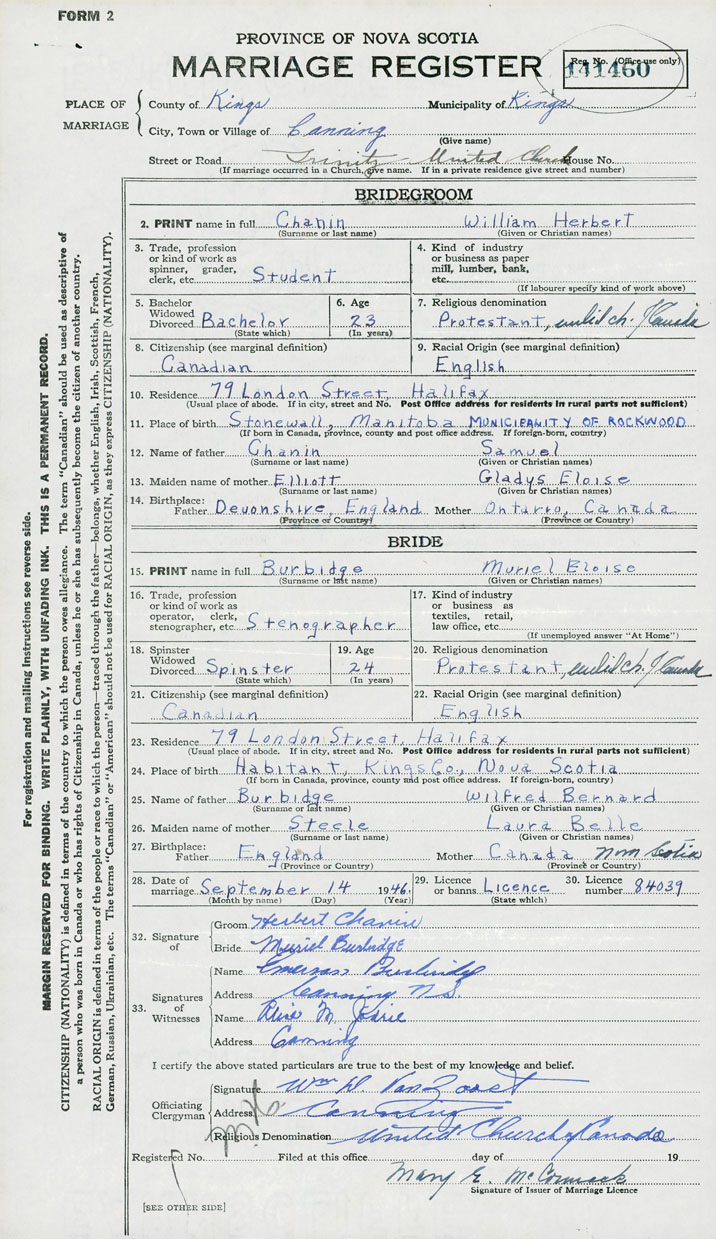 FORM 2
PROVINCE OF NOVA SCOTIA
MARRIAGE REGISTER
Reg. No. (Office use only)
141460
PLACE OF MARRIAGE
County of Kings Municipality of Kings
City, Town or Village of Canning
(Give name)
Street or Road Trinity United Church House No.
(If marriage occurred in a Church, give name. If in a private residence give street and number)
BRIDEGROOM
2. PRINT name in full Chanin William Herbert
(Surname or last name) (Given or Christian names)
3. Trade, profession or kind of work as spinner, grader, clerk, etc. Student
4. Kind of industry or business as paper mill, lumber, bank, etc.
(If labourer specify kind of work above)
5. Bachelor Widowed Divorced Bachelor
(State which)
6. Age 23
(In years)
7. Religious denomination Protestant, United Ch. of Canada
8. Citizenship (see marginal definition) Canadian
9. Racial Origin (see marginal definition) English
10. Residence 79 London Street, Halifax
(Usual place of abode. If in city, street and No. Post Office address for residents in rural parts not sufficient)
11. Place of birth Stonewall, Manitoba MUNICIPALITY OF ROCKWOOD
(If born in Canada, province, county and post office address. If foreign-born, country)
12. Name of father Chanin Samuel
(Surname or last name) (Given or Christian names)
13. Maiden name of mother Elliott Gladys Eloise
(Surname or last name) (Given or Christian names)
14. Birthplace: Father Devonshire, England Mother Ontario, Canada
(Province or Country) (Province or Country)
BRIDE
15. PRINT name in full Burbidge Muriel Eloise
(Surname or last name) (Given or Christian names)
16. Trade, profession or kind of work as operator, clerk, stenographer, etc. Stenographer
17. Kind of industry or business as textiles, retail, law office, etc.
(If unemployed answer "At Home")
18. Spinster Widowed Divorced Spinster
(State which)
19. Age 24
(In years)
20. Religious denomination Protestant, United Ch. of Canada
21. Citizenship (see marginal definition) Canadian
22. Racial Origin (see marginal definition) English
23. Residence 79 London Street, Halifax
(Usual place of abode. If in city, street and No. Post Office address for residents in rural parts not sufficient)
24. Place of birth Habitant, Kings Co., Nova Scotia
(If born in Canada, province, county and post office address. If foreign-born, country)
25. Name of father Burbidge Wilfred Bernard
(Surname or last name) (Given or Christian names)
26. Maiden name of mother Steele Laura Belle
(Surname or last name) (Given or Christian names)
27. Birthplace: Father England Mother Canada Nova Scotia
(Province or Country) (Province or Country)
28. Date of marriage September 14 1946.
(Month by name) (Day) (Year)
29. Licence or banns Licence
(State which)
30. Licence number 84039
32. Signature of
Groom Herbert Chanin
Bride Muriel Burbidge
33. Signatures of Witnesses
Name Burbidge
Address Canning N.S.
Name M.
Address Canning
I certify the above stated particulars are true to the best of my knowledge and belief.
Officiating Clergyman
Signature Wm D Van Zoost
Address Canning
Religious Denomination United Church of Canada
Registered No. Filed at this office day of 19
Mary E. McCormack
Signature of Issuer of Marriage Licence
[SEE OTHER SIDE]
For registration and mailing instructions see reverse side.
MARGIN RESERVED FOR BINDING. WRITE PLAINLY, WITH UNFADING INK. THIS IS A PERMANENT RECORD.
CITIZENSHIP (NATIONALITY) is defined in terms of the country to which the person owes allegiance. The term "Canadian" should be used as descriptive of
a person who was born in Canada or who has rights of Citizenship in Canada, unless he or she has subsequently become the citizen of another country.
RACIAL ORIGIN is defined in terms of the people or race to which the person—traced through the father—belongs, whether English, Irish, Scottish, French,
German, Russian, Ukrainian, etc. The terms "Canadian" or "American" should not be used for RACIAL ORIGIN, as they express CITIZENSHIP (NATIONALITY).